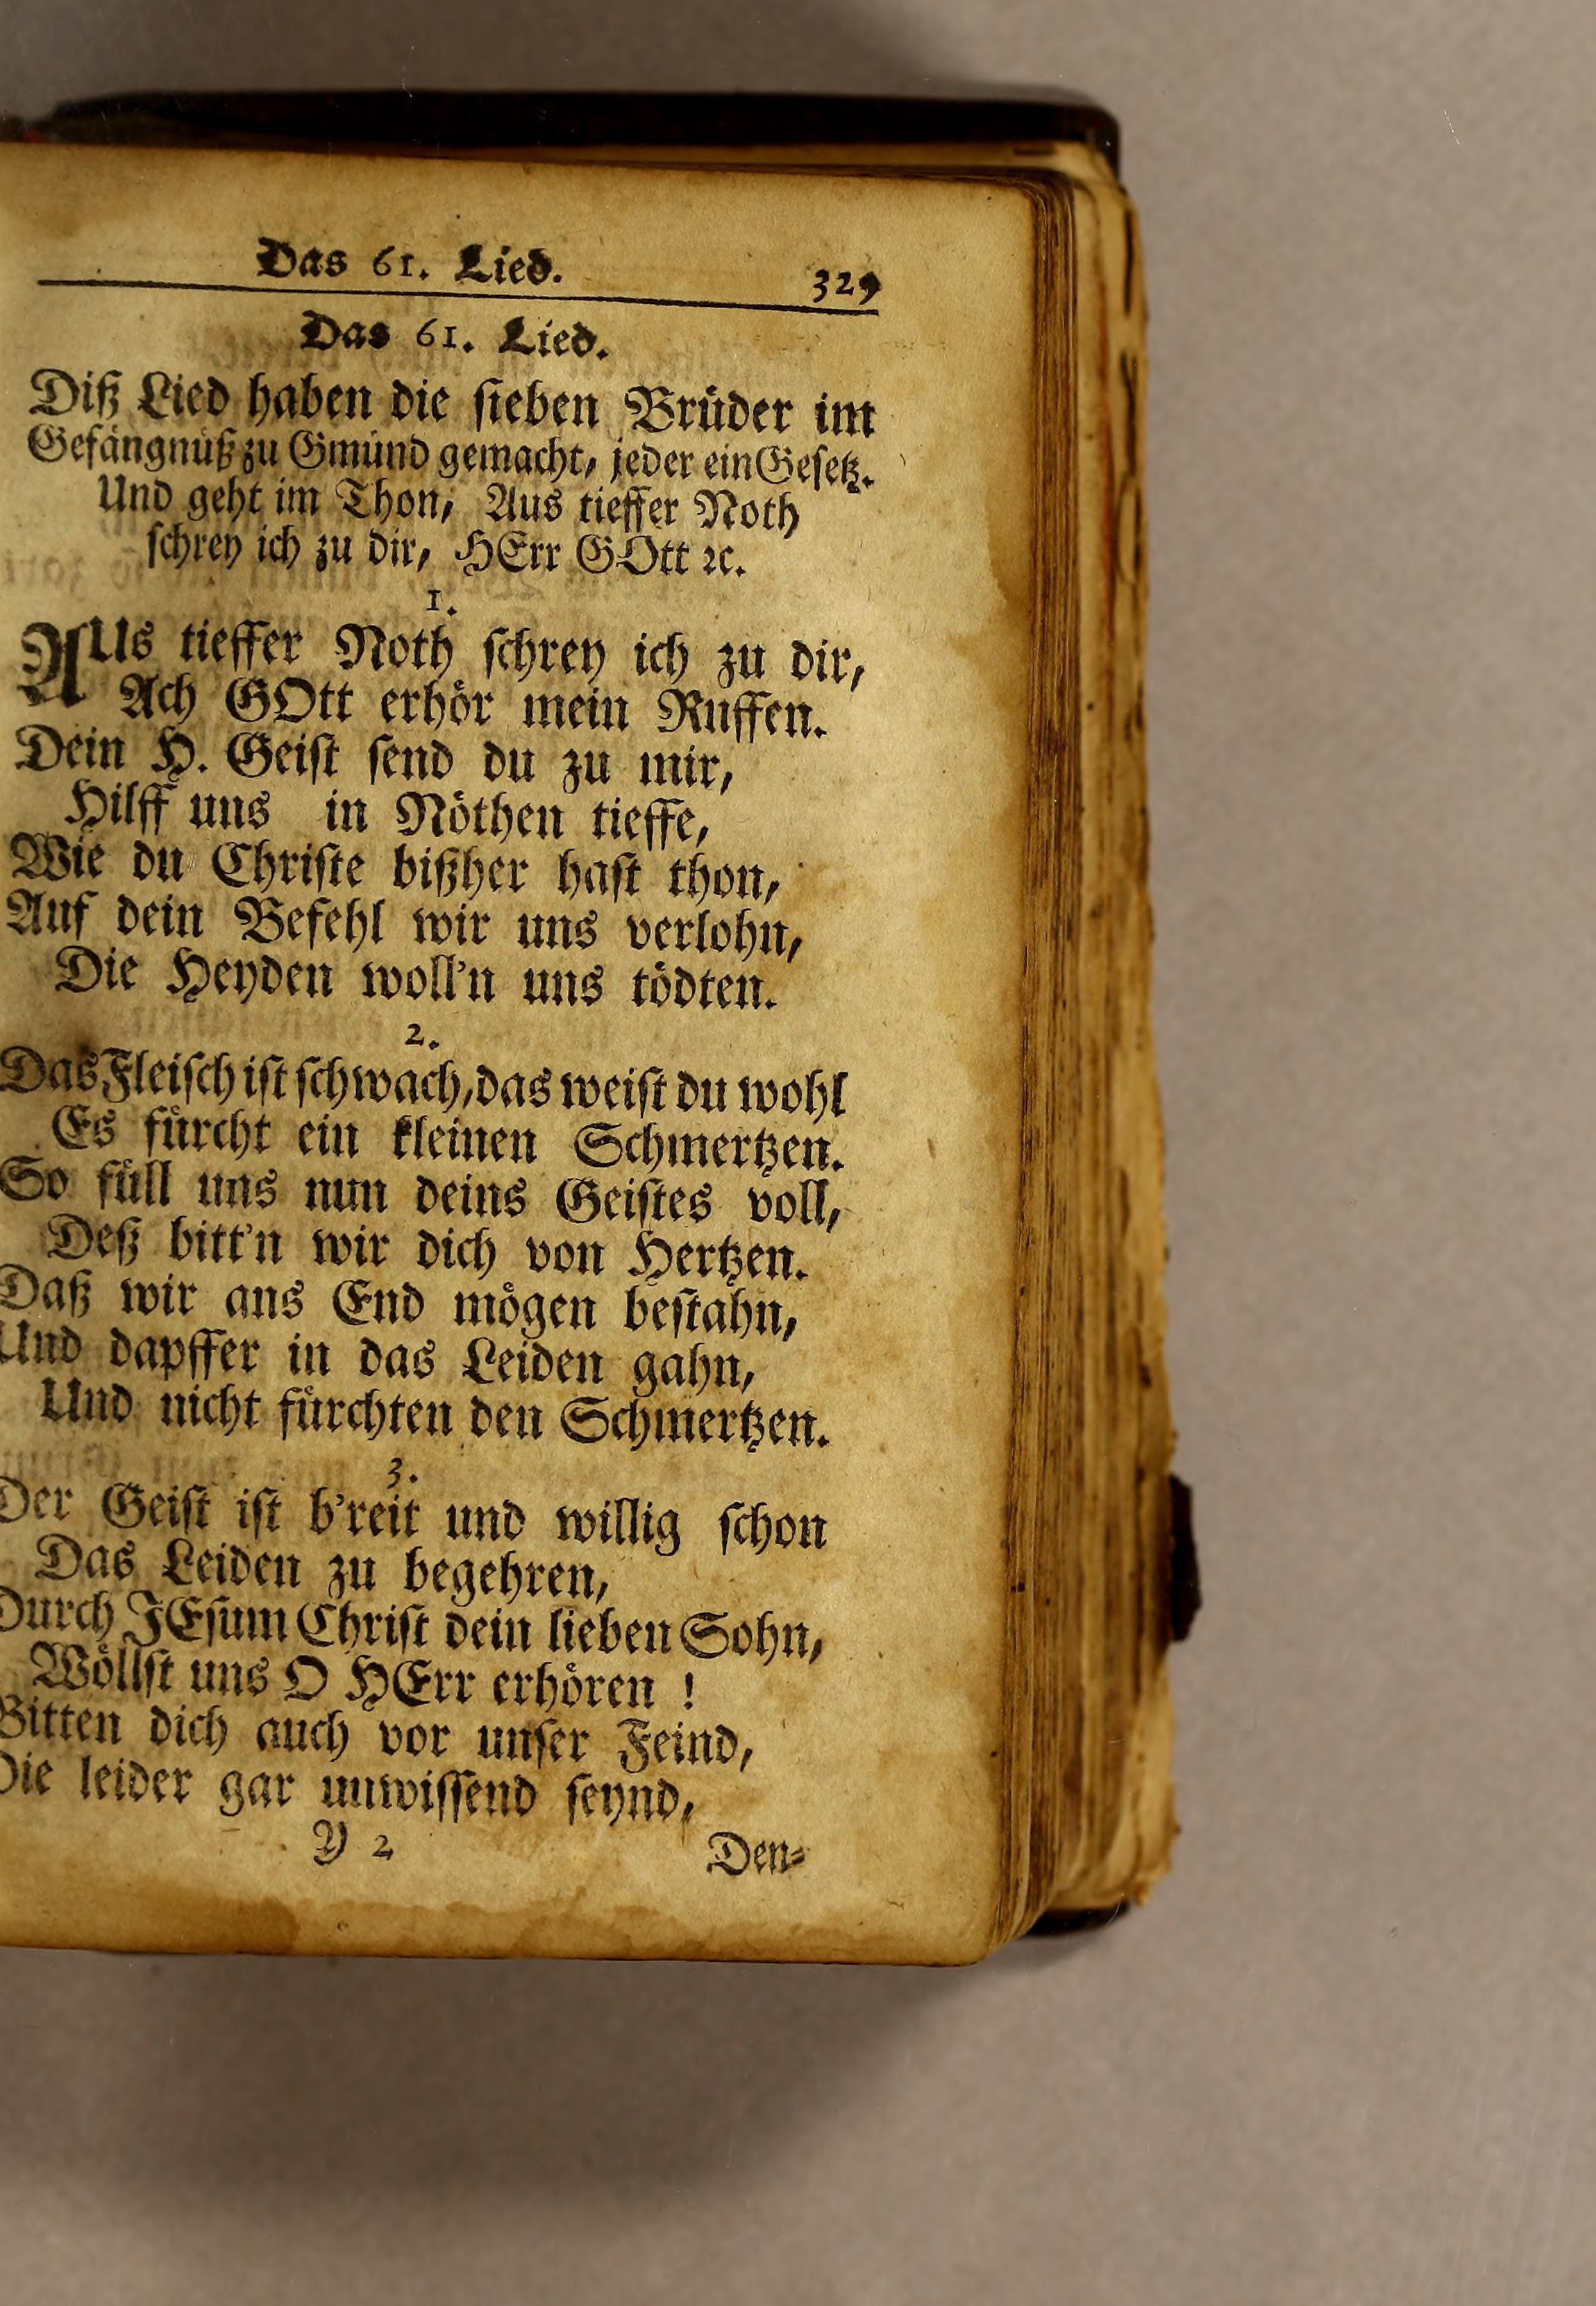 Das 61. Lied. 329
Das 61. Lied.
Diß Lied haben die sieben Brüder im
Gefängnüß zu Gmünd gemacht, jeder ein Gesetz.
Und geht im Thon, Aus tieffer Noth
schrey ich zu dir, HErr GOtt ꝛc.
1.
AUs tieffer Noth schrey ich zu dir,
Ach GOtt erhör mein Ruffen.
Dein H. Geist send du zu mir,
Hilff uns in Nöthen tieffe,
Wie du Christe bißher hast thon,
Auf dein Befehl wir uns verlohn,
Die Heyden woll'n uns tödten.
2.
Das Fleisch ist schwach, das weist du wohl
Es fürcht ein kleinen Schmertzen.
So füll uns nun deins Geistes voll,
Deß bitt'n wir dich von Hertzen.
Daß wir ans End mögen bestahn,
Und dapffer in das Leiden gahn,
Und nicht fürchten den Schmertzen.
3.
Der Geist ist b'reit und willig schon
Das Leiden zu begehren,
Durch JEsum Christ dein lieben Sohn,
Wöllst uns O HErr erhören !
Bitten dich auch vor unser Feind,
Die leider gar unwissend seynd,
Y 2 Den-